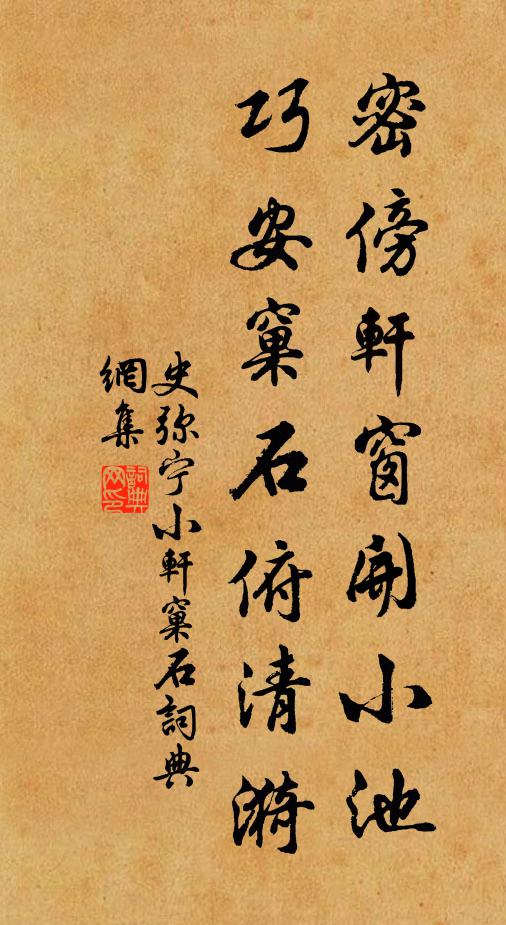 密傍軒窗開小池
巧安窠石俯清漪
史弥宁小軒窠石詞典
網集
詞典
网印